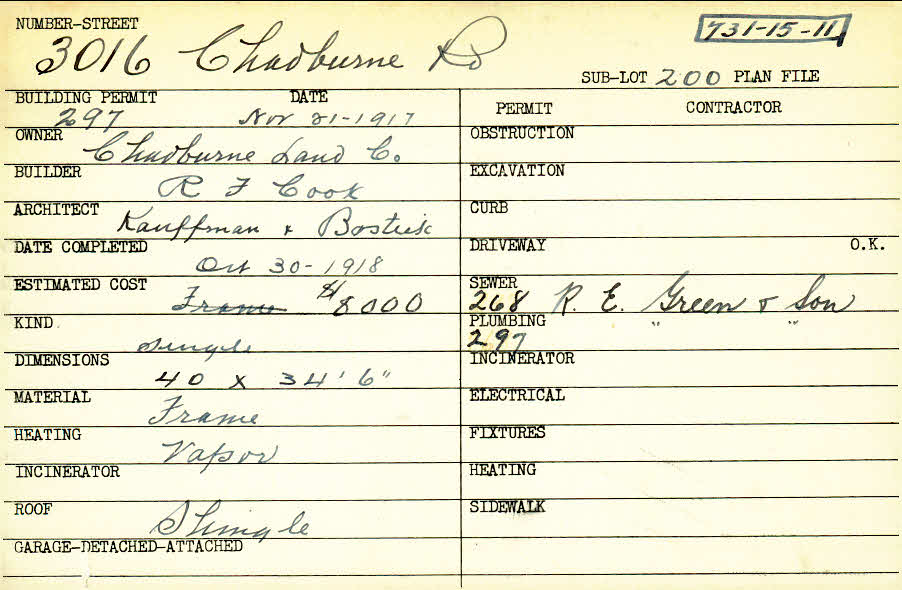 NUMBER-STREET
3016 Chadburne Rd
731-15-11
SUB-LOT 200 PLAN FILE
BUILDING PERMIT DATE
297 Nov 21-1917
OWNER
Chadburne Land Co.
BUILDER
R F Cook
ARCHITECT
Kauffman & Bostick
DATE COMPLETED
Oct 30-1918
ESTIMATED COST
Frame $8000
KIND
Single
DIMENSIONS
40 x 34'6"
MATERIAL
Frame
HEATING
Vapor
INCINERATOR
ROOF
Shingle
GARAGE-DETACHED-ATTACHED
PERMIT CONTRACTOR
OBSTRUCTION
EXCAVATION
CURB
DRIVEWAY O.K.
SEWER
268 R. E. Green & Son
PLUMBING
297 " "
INCINERATOR
ELECTRICAL
FIXTURES
HEATING
SIDEWALK